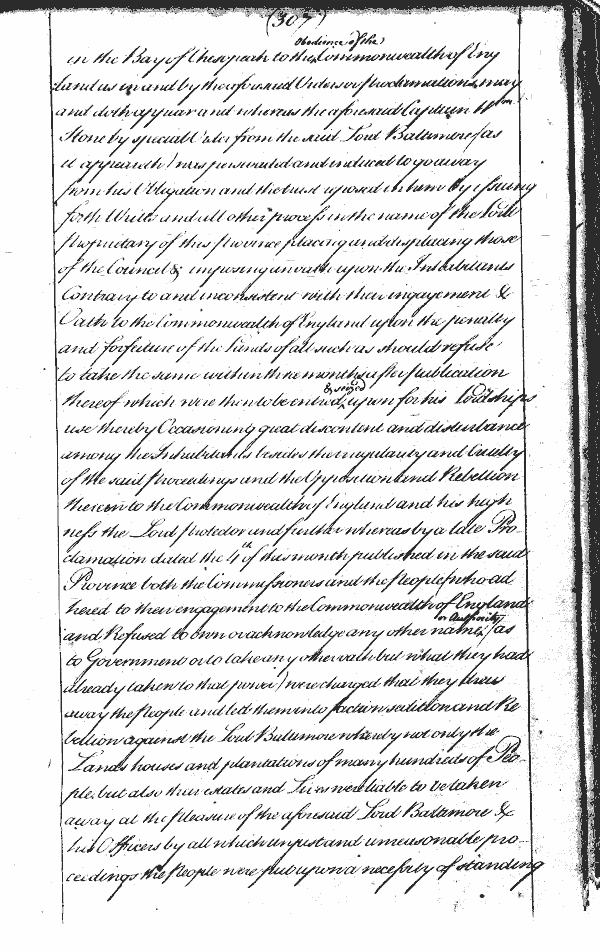 (307)
obedience of the
in the Bay of Chesepeak to the Commonwealth of Eng
land as in and by the aforesaid Orders or proclamations may
and doth appear and whereas the aforesaid Captain Wm.
Stone by special Order from the said Lord Baltimore (as
it appeareth) was perswaded and induced to go away
from his Obligation and the trust reposed in him by issuing
forth Writts and all other process in the name of the Lord
Proprietary of this Province placing and displacing those
of the Council & imposing an oath upon the Inhabitants
Contrary to and inconsistent with their engagement &
Oath to the Commonwealth of England upon the penalty
and forfeiture of the Lands of all such as should refuse
to take the same within three months after publication
& seized
thereof which were then to be entred upon for his Lordships
use thereby Occasioning great discontent and disturbance
among the Inhabitants besides the irregularity and Cruelty
of the said proceedings and the Opposition and Rebellion
therein to the Commonwealth of England and his high
ness the Lord protector and further whereas by a late Pro
clamation dated the 4th of this month published in the said
Province both the Commissioners and the People (who ad
hered to their engagement to the Commonwealth of England
or Authority
and Refused to own or acknowledge any other name, (as
to Government or to take any other oath but what they had
already taken to that power) were charged that they drew
away the People and led them into faction sedition and Re
bellion against the Lord Baltimore whereby not only the
Lands houses and plantations of many hundreds of Peo-
ple, but also their estates and Lives were liable to be taken
away at the pleasure of the aforesaid Lord Baltimore &
his Officers by all which unjust and unreasonable pro-
ceedings the People were put upon a necessity of standing